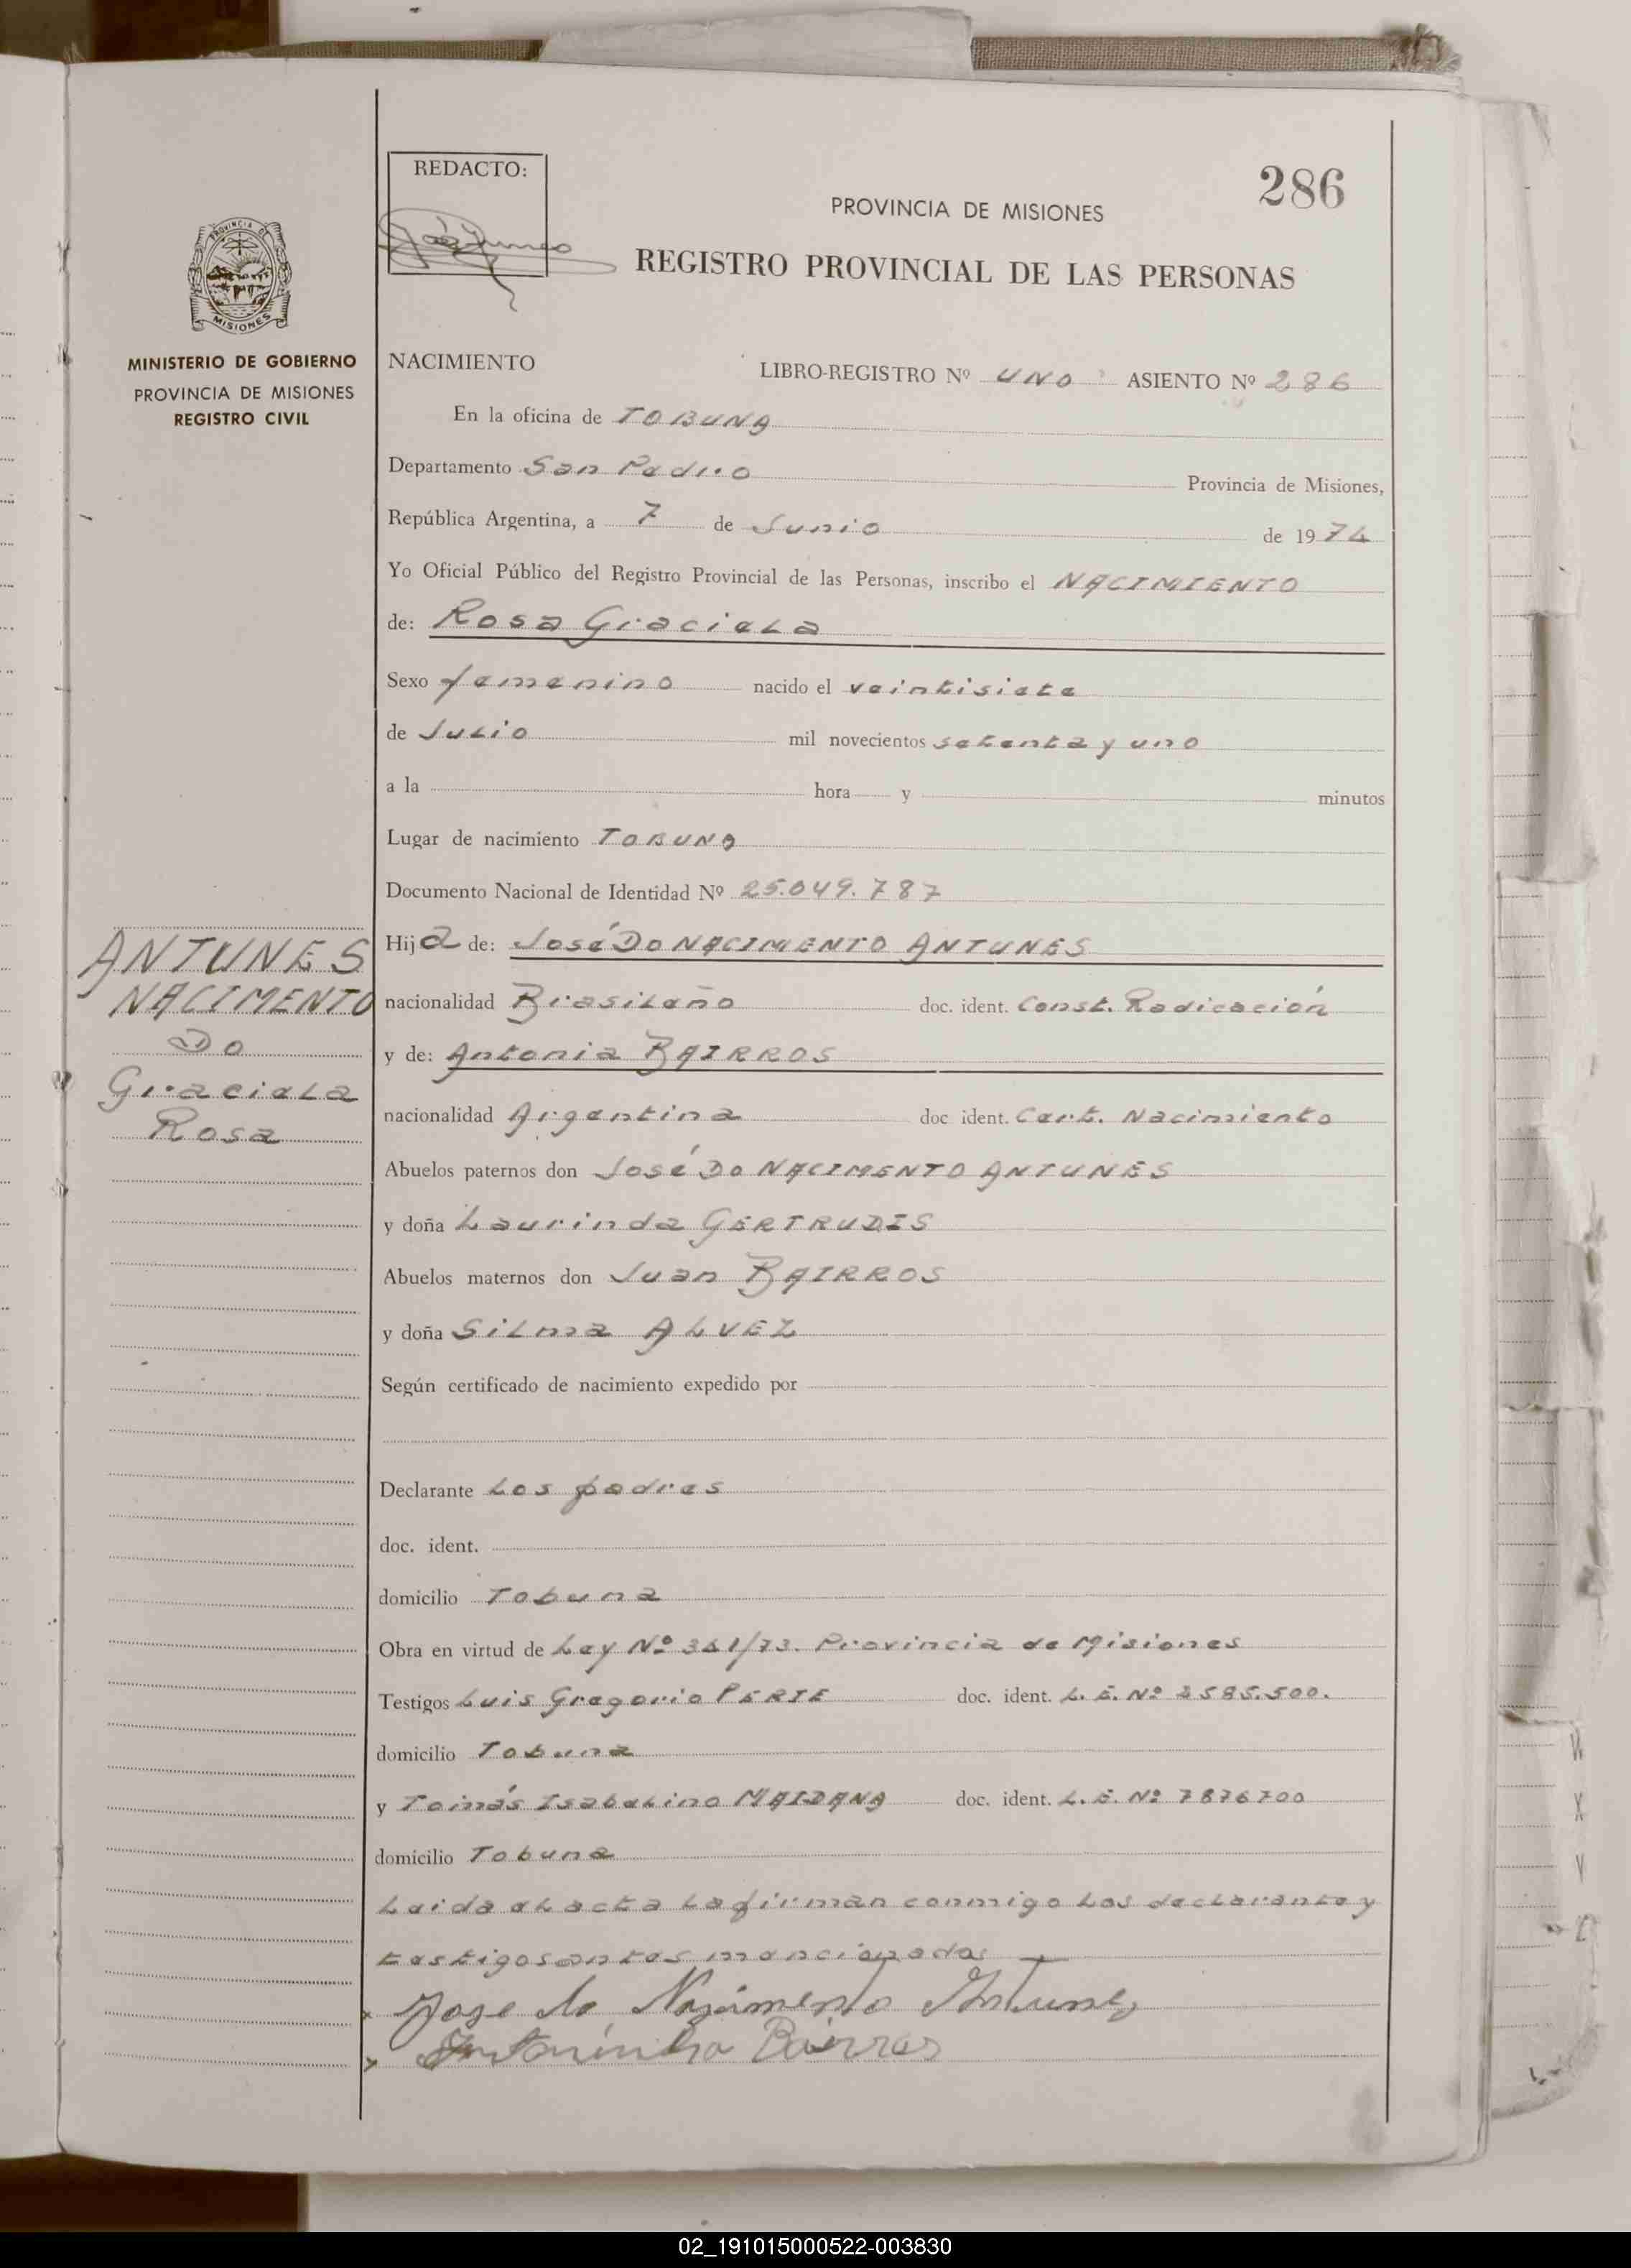 REDACTO:
286
PROVINCIA DE MISIONES
REGISTRO PROVINCIAL DE LAS PERSONAS
PROVINCIA DE
MISIONES
MINISTERIO DE GOBIERNO
PROVINCIA DE MISIONES
REGISTRO CIVIL
NACIMIENTO LIBRO-REGISTRO Nº UNO ASIENTO Nº 286
En la oficina de TOBUNA
Departamento San Pedro Provincia de Misiones,
República Argentina, a 7 de Junio de 1974
Yo Oficial Público del Registro Provincial de las Personas, inscribo el NACIMIENTO
de: Rosa Graciela
Sexo femenino nacido el veintisiete
de Julio mil novecientos setenta y uno
a la hora y minutos
Lugar de nacimiento TOBUNA
Documento Nacional de Identidad Nº 25.049.787
Hija de: José DO NACIMIENTO ANTUNES
nacionalidad Brasileño doc. ident. Const. Radicación
y de: Antonia BAIRROS
nacionalidad Argentina doc ident. Cert. Nacimiento
Abuelos paternos don José DO NACIMENTO ANTUNES
y doña Laurinda GERTRUDIS
Abuelos maternos don Juan BAIRROS
y doña Silma ALVEZ
Según certificado de nacimiento expedido por
Declarante Los padres
doc. ident.
domicilio Tobuna
Obra en virtud de Ley Nº /73. Provincia de Misiones
Testigos Luis Gregorio PERIE doc. ident. L. E. Nº 585.500.
domicilio Tobuna
y Tomás Isabelino MAIDANA doc. ident. L. E. Nº 7876700
domicilio Tobuna
Leida el acta la firman conmigo los declarante y
testigos antes mencionados
Jose do Nazimento Antunes
Bairros
ANTUNES
NACIMENTO
DO
Graciela
Rosa
02_191015000522-003830